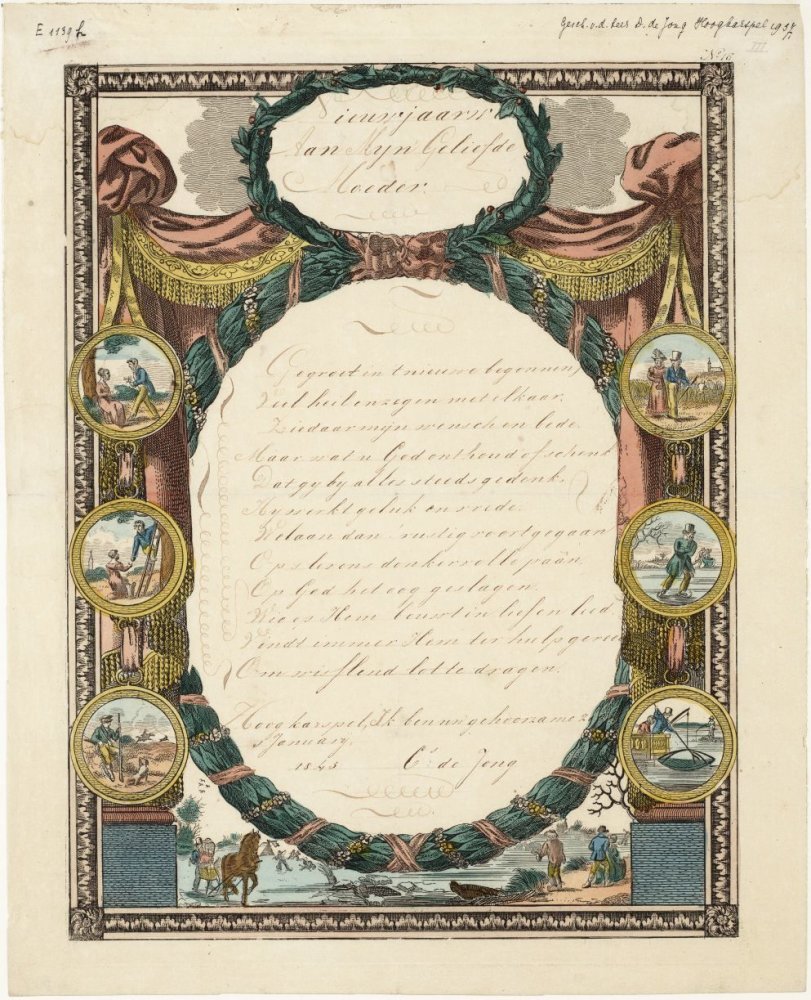 E 1139 h
Gesch. v. d. heer D. de Jong Hoogkarspel 1937
III
No 16
ieuwjaarw
Aan Myn Geliefde
Moeder.
Gegroet in t nieuwe begonnen,
Veel heil en zegen met elkaar.
Ziedaar mijn wensch en bede.
Maar wat u God onthoud of schenk
Dat gy by alles steeds gedenk.
Hy werkt geluk en vrede.
Welaan dan rustig voortgegaan
Op s levens donker volle paän
Op God het oog geslagen.
Wie os Hem bouwt in lief en leed
Vindt immer Hem ter hulp gereed
Om wis
Hoogkarspel, Ik ben uw gehoorzame z
1 January.
1843 Cs de Jong